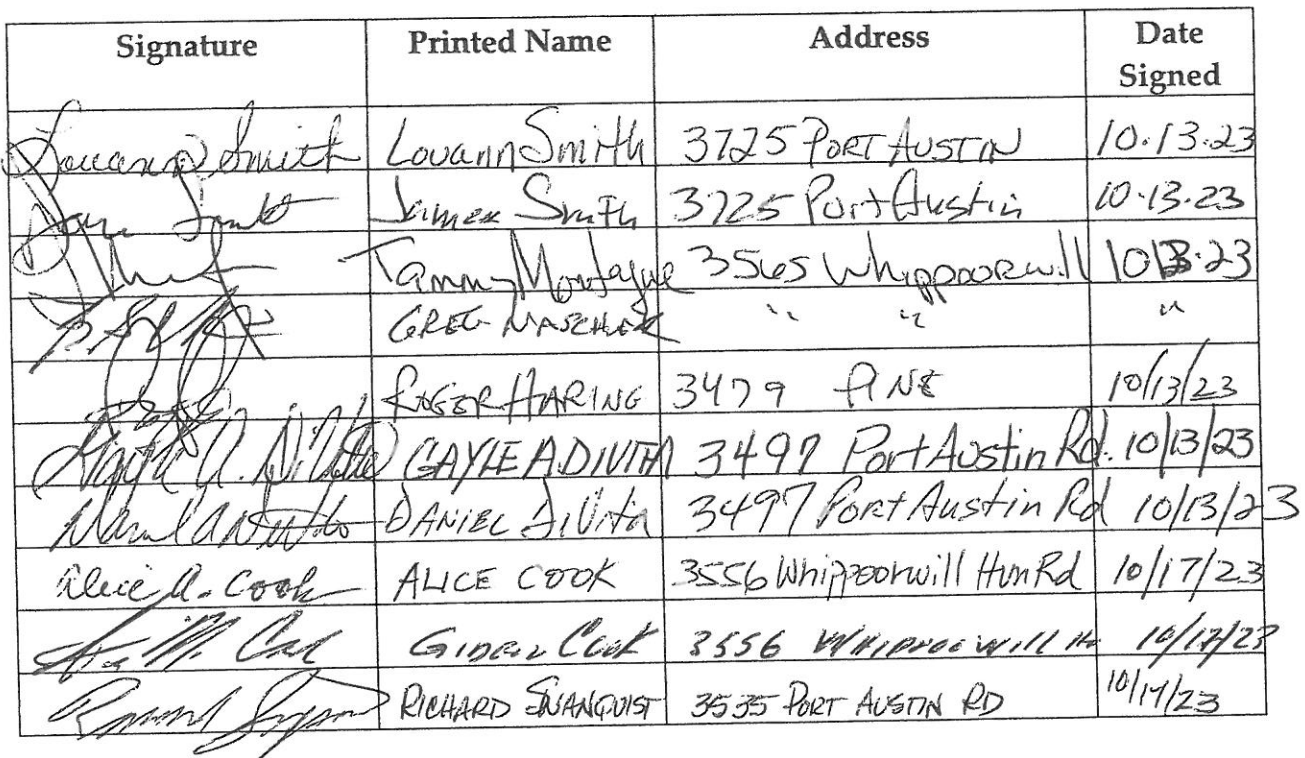 Signature Printed Name Address Date Signed
Louann Smith Louann Smith 3725 PORT AUSTIN 10.13.23
James Smith 3725 Port Austin 10.13.23
Tammy Montague 3565 Whippoorwill 10 13.23
GREG MASCHEK " " "
ROGER HARING 3479 PINE 10/13/23
Gayle A. DiVita GAYLE A DIVITA 3497 Port Austin Rd. 10/13/23
DANIEL DiVita 3497 Port Austin Rd 10/13/23
Alice A. Cook ALICE COOK 3556 Whippoorwill Hvn Rd 10/17/23
Cook 3556 10/17/23
RICHARD SWANQUIST 3535 PORT AUSTIN RD 10/17/23